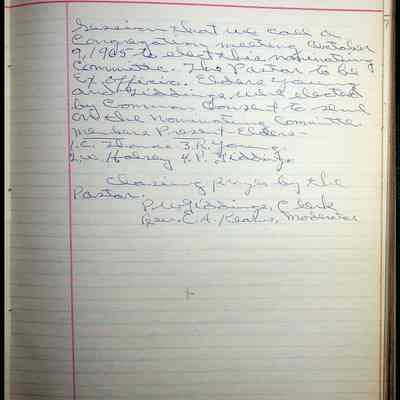 Session that we call a
Congregation meeting October
9, 1905 to elect the nominating
Committee. The Pastor to be
Ex Officio. Elders Young
and Giddings, were elected
by Common Consent to serve
on the Nominating Committe.
Members Present - Elders -
1. C. Thomas 3. R. Young.
2. W. Halsey 4. P. Giddings.
Closing prayer by the
Pastor.
P. W. Giddings, Clerk
Rev. E. A. Moderator